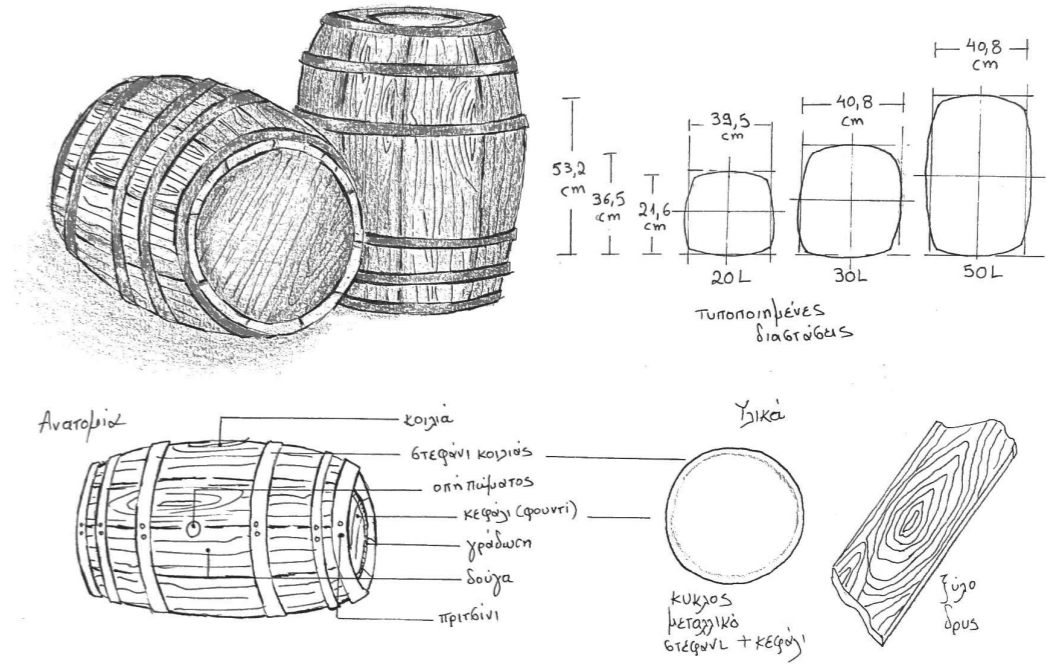 40,8
cm
40,8
cm
39,5
cm
53,2
cm
36,5
cm
21,6
cm
20L
30L
50L
τυποποιημένες
διαστάσεις
Ανατομία
κοιλιά
στεφάνι κοιλιάς
οπή πώματος
κεφάλι (φουντί)
γράδωση
δούγα
πριτσίνι
Υλικά
κύκλος
μεταλλικό
στεφάνι + κεφάλι
ξύλο
δρυς